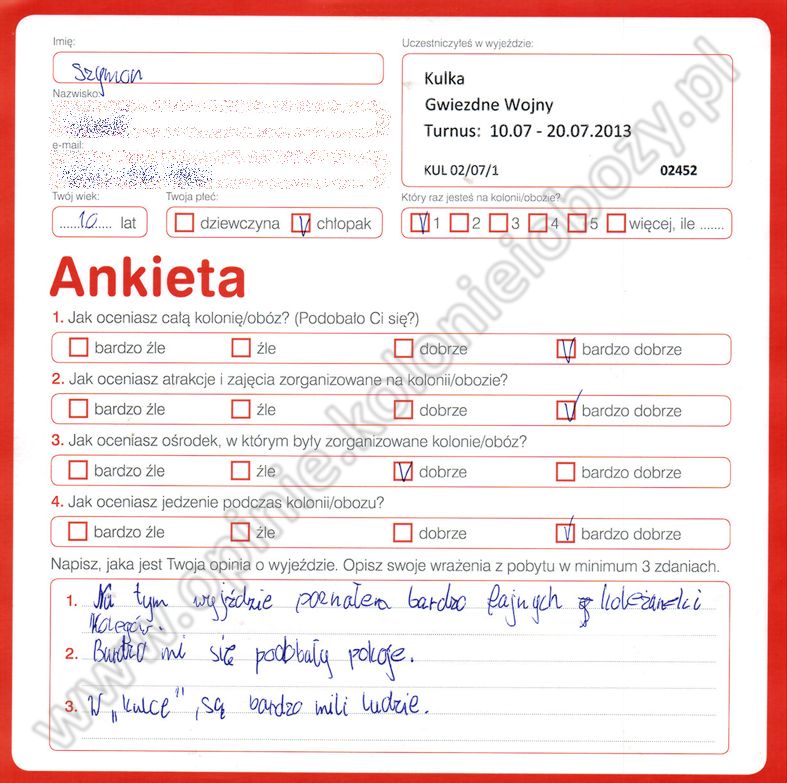 Imię:
Uczestniczyłeś w wyjeździe:
Szymon
Kulka
Gwiezdne Wojny
Turnus: 10.07 - 20.07.2013
KUL 02/07/1 02452
Nazwisko:
e-mail:
Twój wiek: Twoja płeć: Który raz jesteś na kolonii/obozie?
10 lat dziewczyna V chłopak V 1 2 3 4 5 więcej, ile .......
Ankieta
1. Jak oceniasz całą kolonię/obóz? (Podobało Ci się?)
bardzo źle źle dobrze V bardzo dobrze
2. Jak oceniasz atrakcje i zajęcia zorganizowane na kolonii/obozie?
bardzo źle źle dobrze V bardzo dobrze
3. Jak oceniasz ośrodek, w którym były zorganizowane kolonie/obóz?
bardzo źle źle V dobrze bardzo dobrze
4. Jak oceniasz jedzenie podczas kolonii/obozu?
bardzo źle źle dobrze V bardzo dobrze
Napisz, jaka jest Twoja opinia o wyjeździe. Opisz swoje wrażenia z pobytu w minimum 3 zdaniach.
1. Na tym wyjeździe poznałem bardzo fajnych koleżanki
kolegów.
2. Bardzo mi się podobały pokoje.
3. W „kulce”, są bardzo mili ludzie.
www.opinie.kolonieiobozy.pl